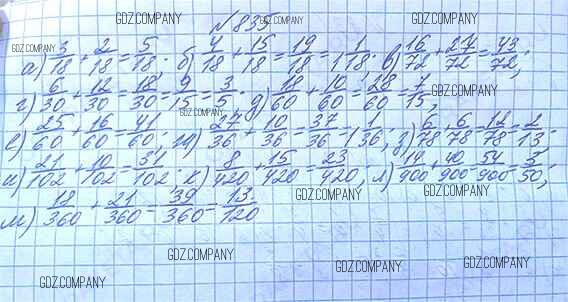 GDZ.COMPANY
№835.
GDZ.COMPANY GDZ.COMPANY
GDZ.COMPANY
а) 3/18 + 2/18 = 5/18. б) 4/18 + 15/18 = 19/18 = 1 1/18. в) 16/72 + 27/72 = 43/72;
г) 6/30 + 12/30 = 18/30 = 9/15 = 3/5. д) 18/60 + 10/60 = 28/60 = 7/15,
GDZ.COMPANY
е) 25/60 + 16/60 = 41/60; ж) 27/36 + 10/36 = 37/36 = 1 1/36, з) 6/78 + 6/78 = 12/78 = 2/13.
и) 21/102 + 10/102 = 31/102. к) 8/420 + 15/420 = 23/420, л) 14/900 + 40/900 = 54/900 = 3/50;
GDZ.COMPANY GDZ.COMPANY
м) 18/360 + 21/360 = 39/360 = 13/120
GDZ.COMPANY
GDZ.COMPANY GDZ.COMPANY
GDZ.COMPANY